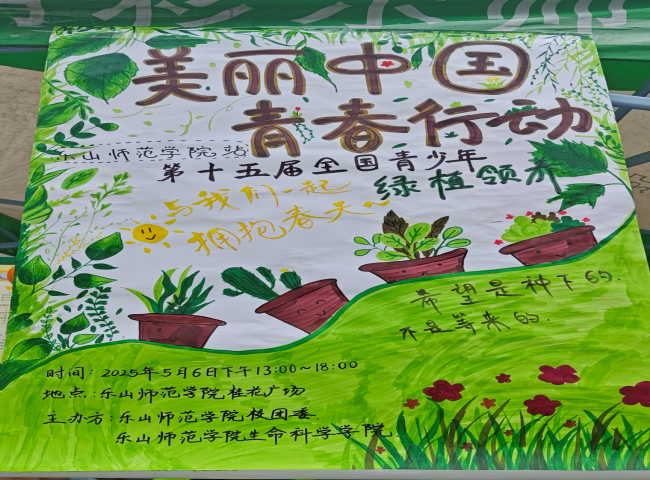 美丽中国
青春行动
乐山师范学院站
第十五届全国青少年
绿植领养
与我们一起
拥抱春天~
希望是种下的.
不是等来的.
时间: 2025年5月6日下午13:00~18:00
地点: 乐山师范学院桂花广场
主办方: 乐山师范学院校团委
乐山师范学院生命科学学院